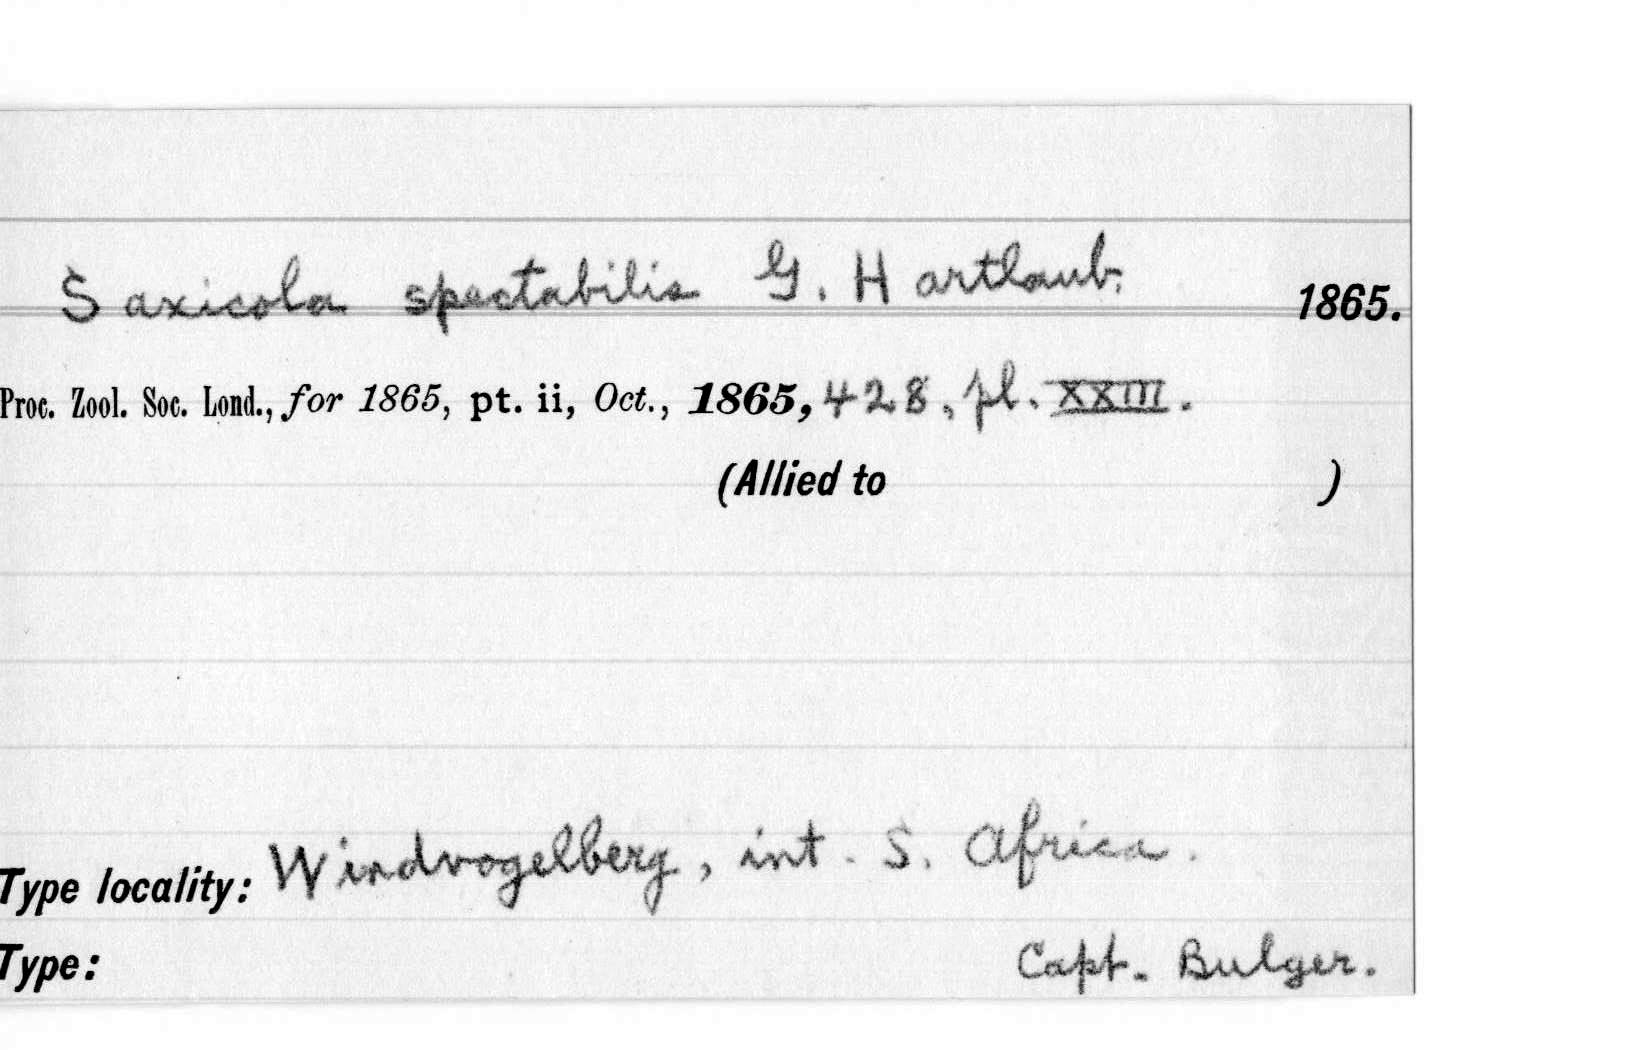 Saxicola spectabilis G. Hartlaub. 1865.
Proc. Zool. Soc. Lond., for 1865, pt. ii, Oct., 1865, 428, pl. XXIII.
(Allied to )
Type locality: Windvogelberg, int. S. Africa.
Type: Capt. Bulger.